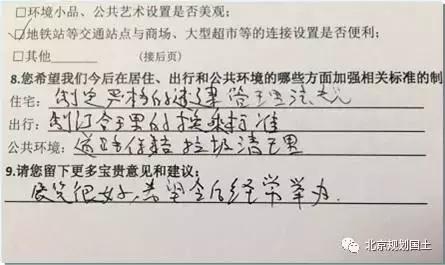 □环境小品、公共艺术设置是否美观；
☑地铁站等交通站点与商场、大型超市等的连接设置是否便利；
□其他 （接后页）
8.您希望我们今后在居住、出行和公共环境的哪些方面加强相关标准的制
住宅：制定严格的违建管理法规
出行：制订合理的换乘标准
公共环境：道路保洁 垃圾清理
9.请您留下更多宝贵意见和建议：
展览很好，希望今后经常举办.
北京规划国土